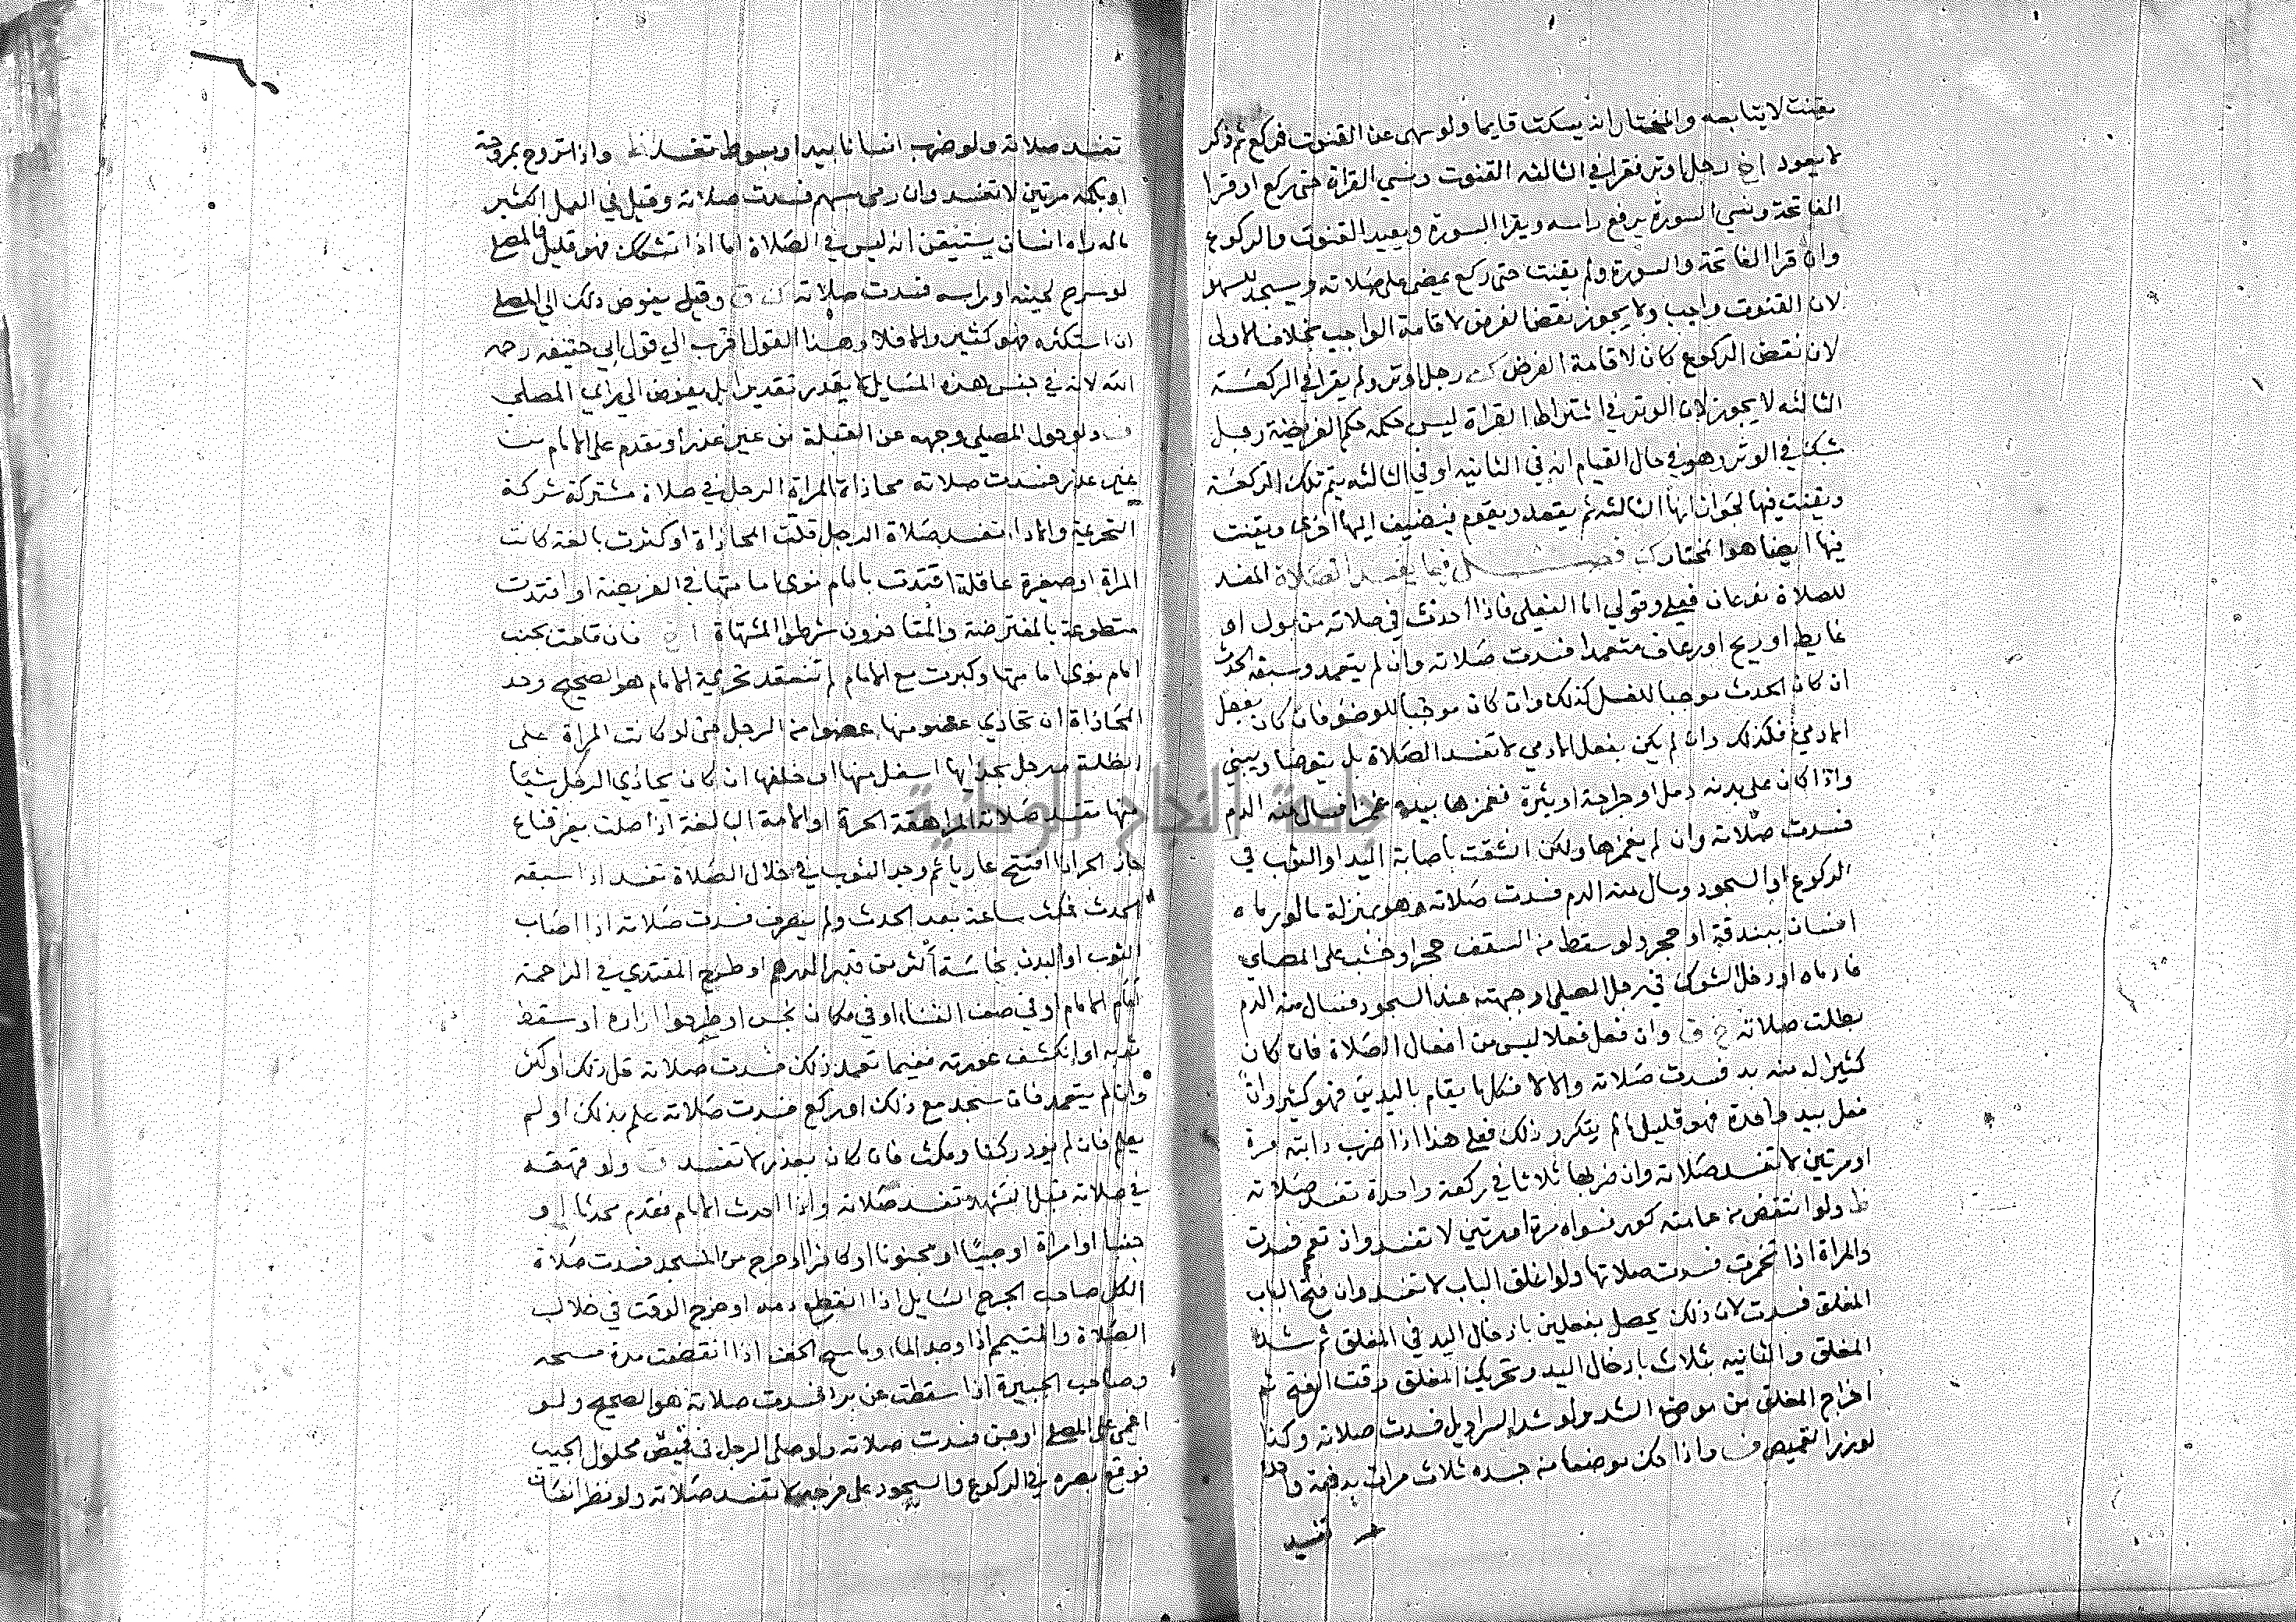 يقنت لا يتابعه والمختار انه يسكت قايما ولو سهى عن القنوت فركع ثم ذكر
لا يعود رجل اوتر فقرا في الثالثه القنوت ونسي القراة حتى ركع او قرا
الفاتحة ونسي السورة يرفع راسه ويقرا السورة ويعيد القنوت والركوع
وان قرا الفاتحة والسورة ولم يقنت حتى ركع يمضي على صلاته ويسجد للسهو
لان القنوت واجب ولا يجوز نقض الفرض لاقامة الواجب بخلاف الاولى
لان نقض الركوع كان لاقامة الفرض رجل اوتر ولم يقرا في الركعة
الثالثه لا يجوز لان الوتر في اشتراط القراة ليس حكمه حكم الفريضة رجل
شك في الوتر وهو في حال القيام انه في الثانيه او في الثالثه يتم تلك الركعة
ويقنت فيها لجواز انها الثالثه ثم يقعد ويقوم فيضيف اليها اخرى ويقنت
فيها ايضا هو المختار فصل فيما يفسد الصلاة المفسد
للصلاة نوعان فعلي وقولي اما الفعلي فاذا احدث في صلاته من بول او
غايط او ريح او رعاف متعمدا فسدت صلاته وان لم يتعمد وسبقه الحدث
ان كان الحدث موجبا للغسل كذلك وان كان موجبا للوضو فان كان بفعل
الادمي فكذلك وان لم يكن بفعل الادمي لا تفسد الصلاة بل يتوضا ويبني
واذا كان على بدنه دمل او جراحة او بثرة فغمزها بيده غمزا فسال منه الدم
فسدت صلاته وان لم يغمزها ولكن انشقت باصابة اليد او الثوب في
الركوع او السجود وسال منه الدم فسدت صلاته وهو بمنزلة ما لو رماه
انسان ببندقة او حجر ولو سقط من السقف حجر او خشب على المصلي
فادماه او دخل الشوك في رجل المصلي او جبهته عند السجود فسال منه الدم
بطلت صلاته وان فعل فعلا ليس من افعال الصلاة فان كان
كثيرا له منه بد فسدت صلاته والا لا فكل ما يقام باليدين فهو كثير وان
فعل بيد واحدة فهو قليل ما لم يتكرر ذلك فعلى هذا اذا ضرب دابته مرة
او مرتين لا تفسد صلاته وان ضربها ثلاثا في ركعة واحدة تفسد صلاته
ولو انتقض من عمامته كور فسواه مرة او مرتين لا تفسد وان تعمم فسدت
والمراة اذا تخمرت فسدت صلاتها ولو اغلق الباب لا تفسد وان فتح الباب
المغلق فسدت لان ذلك يحصل بفعلين بادخال اليد في المغلق ثم شد
المغلق والثانيه بثلاث بادخال اليد وتحريك المغلق وقت الفتح ثم
اخراج المغلق من موضع الشد ولو شد السراويل فسدت صلاته وكذا
لو زرر القميص ف واذا حك موضعا من جسده ثلاث مرات بدفعة واحدة
تفسد
تفسد صلاته ولو ضرب انسانا بيد او بسوط تفسد واذا تروح بمروحة
او بكمه مرتين لا تفسد وان رمى بسهم فسدت صلاته وقيل في العمل الكثير
ما لو راه انسان يستيقن انه ليس في الصلاة اما اذا تشكك فهو قليل فالمصلي
لو سرح لحيته او راسه فسدت صلاته وقيل يفوض ذلك الى المصلي
ان استكثره فهو كثير والا فلا وهذا القول اقرب الى قول ابي حنيفه رحمه
الله لانه في جنس هذه المسايل لا يقدر تقديرا بل يفوض الى راي المصلي
ف ولو حول المصلي وجهه عن القبلة من غير عذر او تقدم على الامام من
غير عذر فسدت صلاته محاذاة المراة الرجل في صلاة مشتركة شركة
التحريمة والادا تفسد صلاة الرجل قلت المحاذاة او كثرت بالغة كانت
المراة او صغيرة عاقلة اقتدت بامام نوى امامتها في الفريضة او اقتدت
متطوعة بالمفترضة والمتاخرون شرطوا المشتهاة فان قامت بجنب
امام نوى امامتها وكبرت مع الامام لم تنعقد تحريمة الامام هو الصحيح وحد
المحاذاة ان تحاذي عضو منها عضوا من الرجل حتى لو كانت المراة على
الظلة ورجل بحذايها اسفل منها او خلفها ان كان يحاذي الرجل شيئا
منها تفسد صلاته المراهقة الحرة او الامة البالغة اذا صلت بغير قناع
جاز الحر اذا افتتح عاريا ثم وجد الثوب في خلال الصلاة تفسد اذا سبقه
الحدث فمكث ساعة بعد الحدث ولم ينصرف فسدت صلاته اذا اصاب
الثوب او البدن نجاسة اكثر من قدر الدرهم او طرح المقتدي في الزحمة
امام الامام او في صف النساء او في مكان نجس او طرحوا ازاره او سقط
ثوبه او انكشف عورته ففيما تعمد ذلك فسدت صلاته قل ذلك او كثر
وان لم يتعمد فان سجد مع ذلك او ركع فسدت صلاته علم بذلك او لم
يعلم فان لم يود ركنا ومكث فان كان بعذر لا تفسد ف ولو قهقه
في صلاته قبل التشهد تفسد صلاته واذا احدث الامام فقدم محدثا او
جنبا او امراة او صبيا او مجنونا او كافرا وخرج من المسجد فسدت صلاة
الكل صاحب الجرح السايل اذا انقطع دمه او خرج الوقت في خلال
الصلاة والمتيمم اذا وجد الماء وماسح الخف اذا انقضت مدة مسحه
وصاحب الجبيرة اذا سقطت عن برا فسدت صلاته هو الصحيح ولو
اغمي على المصلي او جن فسدت صلاته ولو صلى الرجل في قميص محلول الجيب
فوقع بصره في الركوع والسجود على فرجه لا تفسد صلاته ولو نظر انسان
جامعة النجاح الوطنية